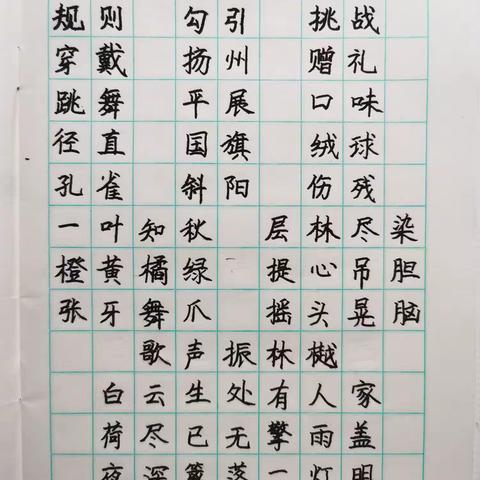 规则 勾引 挑战
穿戴 扬州 赠礼
跳舞 平展 口味
径直 国旗 绒球
孔雀 斜阳 伤残
一叶知秋 层林尽染
橙黄橘绿 提心吊胆
张牙舞爪 摇头晃脑
歌声振林樾
白云生处有人家
荷尽已无擎雨盖
夜深篱落一灯明